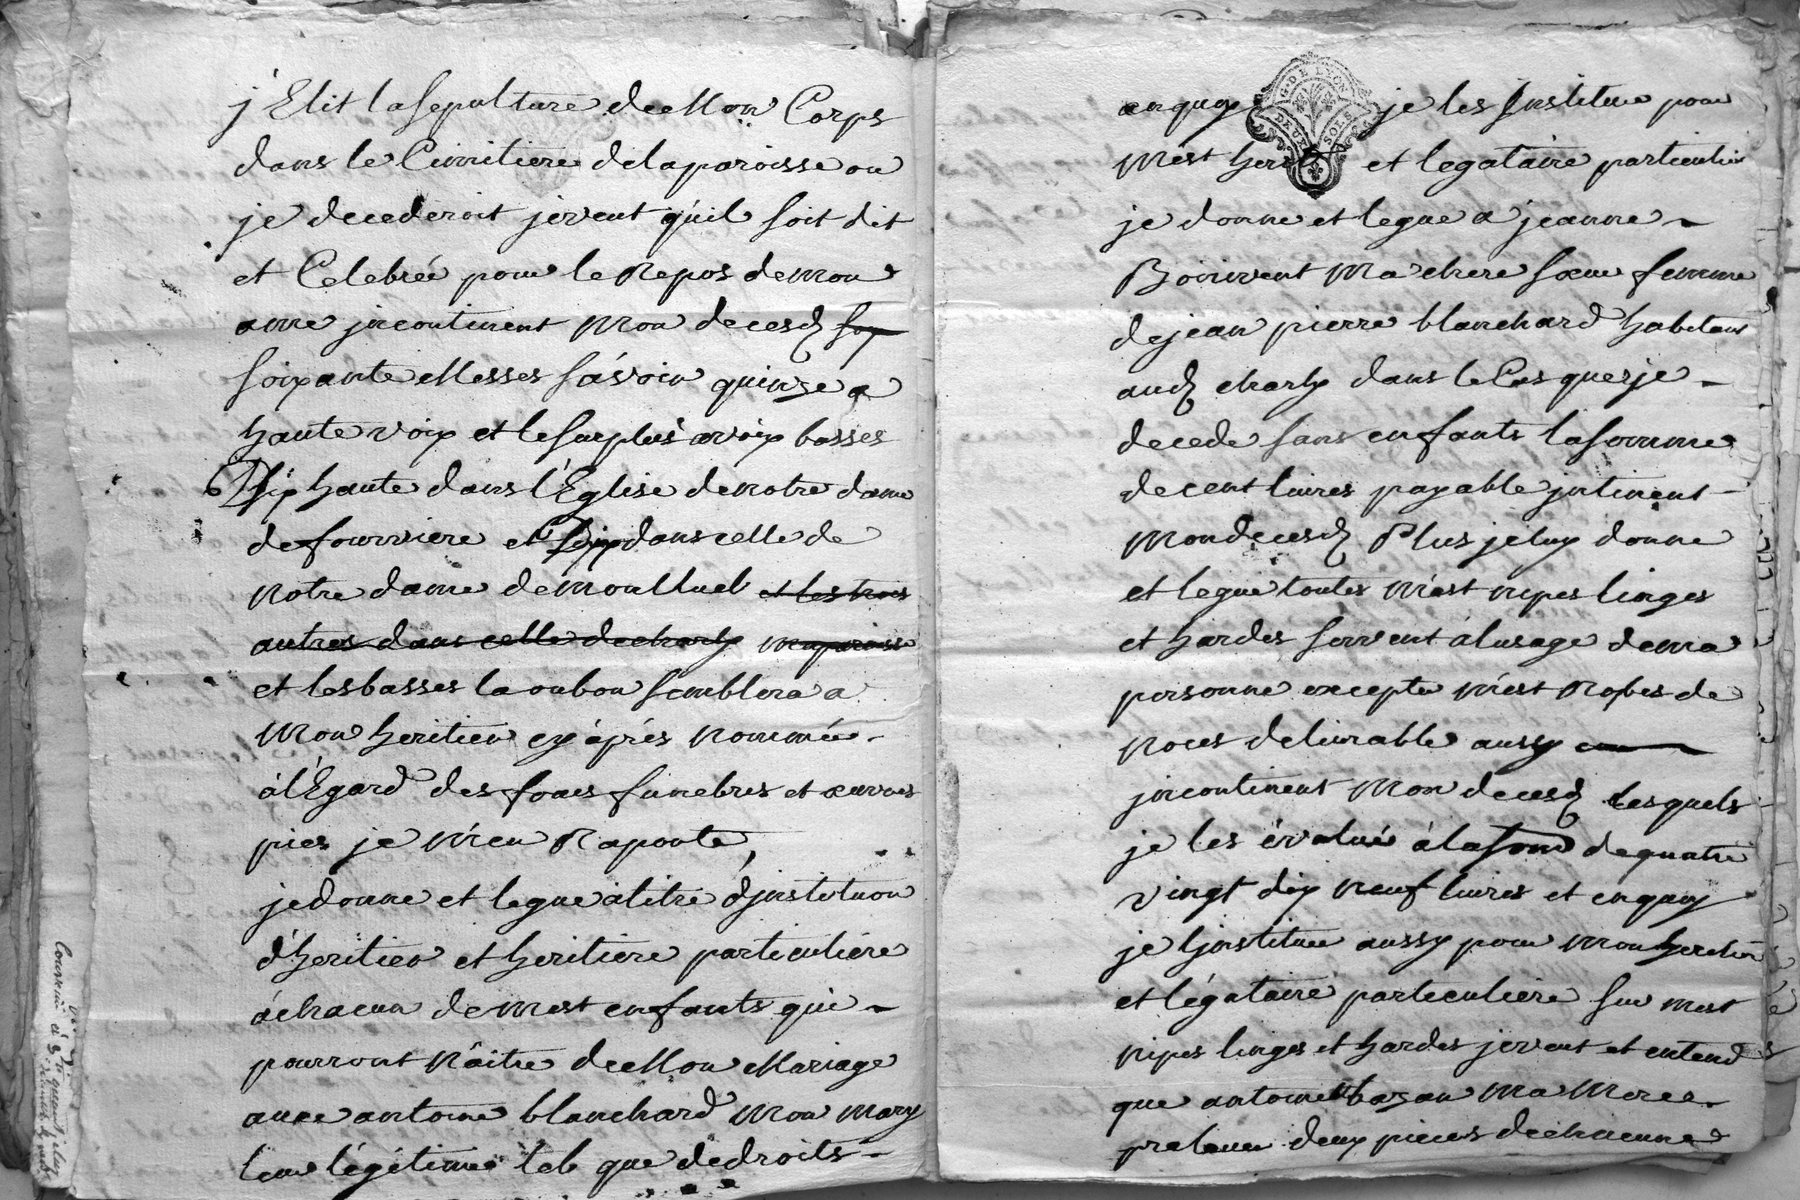 j'Elit la Sepulture de Mon Corps
dans le Cimitiere de la paroisse ou
je decederoit je veut qu'il soit dit
et Celebreé pour le Repos de mon
ame jncontinent Mon deces
soixante Messes sávoir quinze a
haute voix et le surplus a voix basses
six haute dans l'Eglise de notre dame
de fourviere et six dans celle de
Notre dame de Monlluel et les trois
autres dans celle de charly ma paroisse
et les basses la ou bon semblera a
Mon heritier cy áprés nommée
à l'Egard des frais funebres et œuvres
pies je m'en Raporte,
je donne et legue à titre d'jnstitution
d'heritier et heritiere particuliére
á chacun de mest enfants qui
pourront Nâitre de Mon Mariage
avec antoine blanchard Mon mary
leur légitime tel que de droits
en quoy je les jnstitue pour
Mest et legataire particulier
je donne et legue a jeanne
Bonnvent Ma chere sœur femme
de jean pierre blanchard habitans
aud charly dans le Cas que je
decede sans enfants la somme
de cent livres payable jntinent
Mon deces Plus je luy donne
et legue toutes mest nipes linges
et hardes servent á lusage de ma
personne excepte mest Robes de
noces delivrable aussy
jncontinent Mon deces lesquels
je les évalué á la som de quatre
vingt dix neuf livres et en quoy
je l'jnstitue aussy pour mon
et légataire particuliere sur mest
nipes linges et hardes je veut et entend
que antoinette bazan Ma Mere
preleve deux pieces de chacune